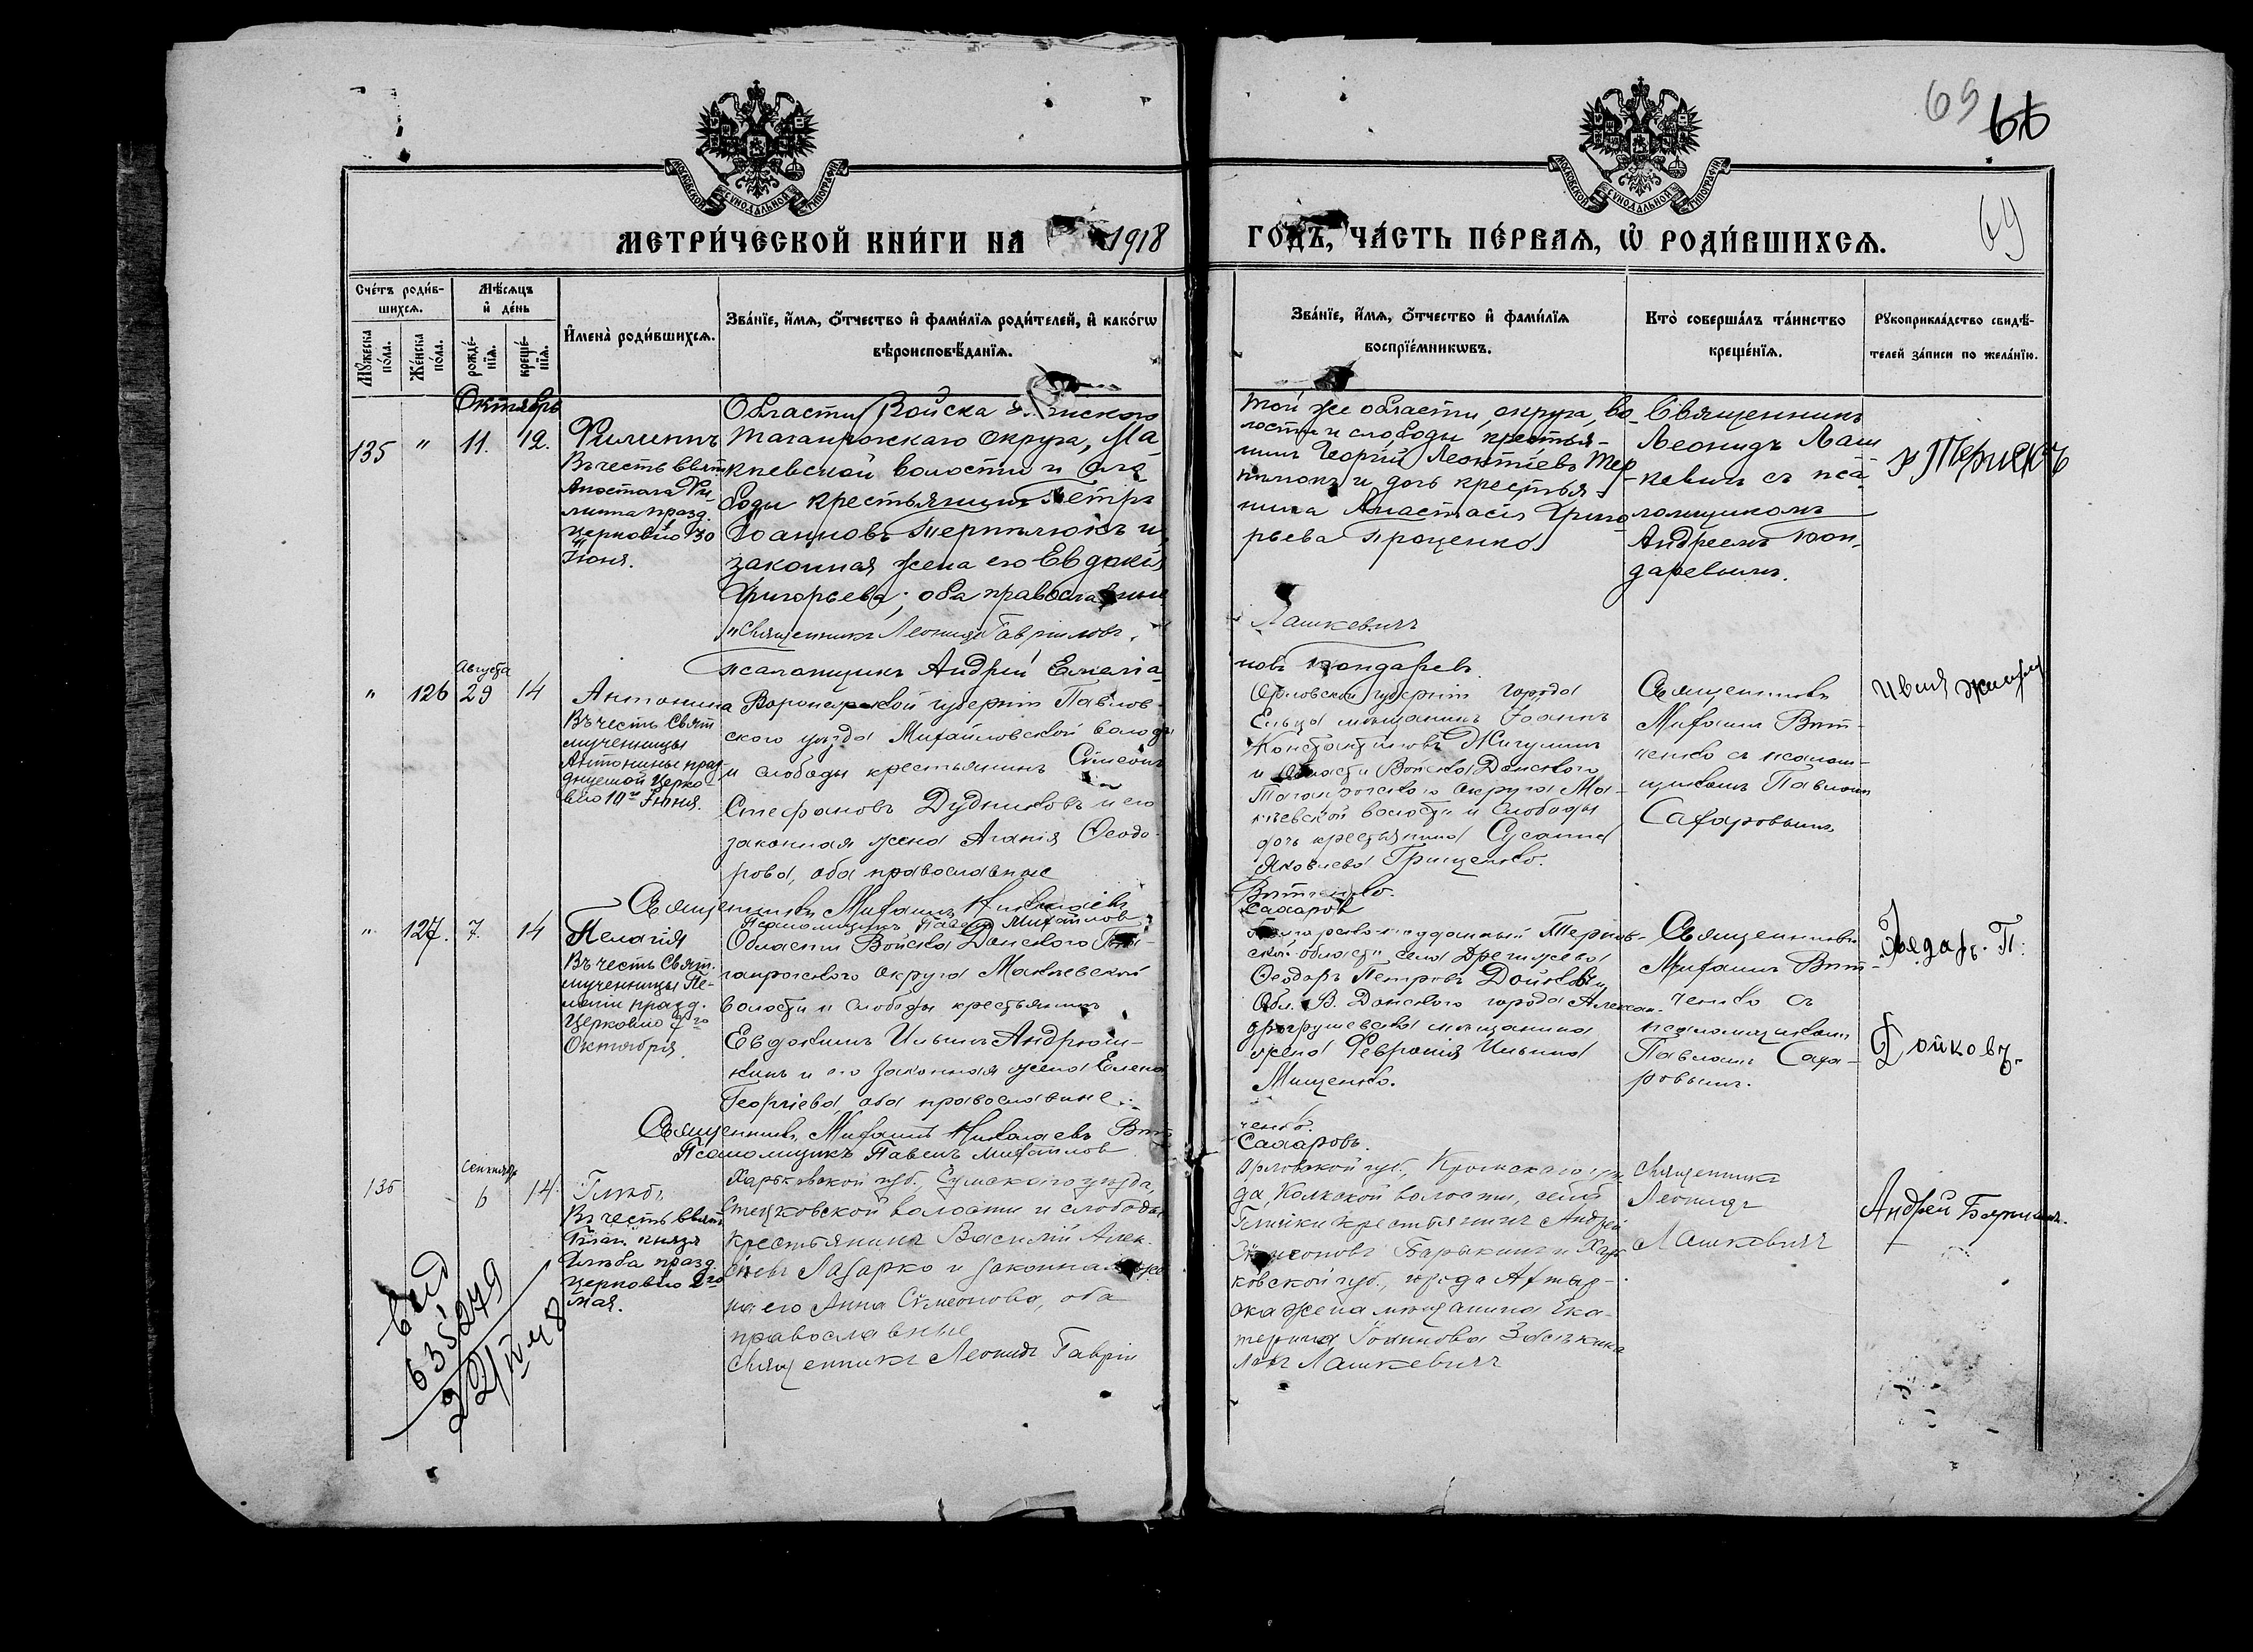 69
66
69
МОСКОВСКОЙ СѴНОДАЛЬНОЙ ТИПОГРАФІИ
МОСКОВСКОЙ СѴНОДАЛЬНОЙ ТИПОГРАФІИ
МЕТРИ́ЧЕСКОЙ КНИ́ГИ НА 1918
ГОДЪ, ЧА́СТЬ ПЕ́РВАѦ, Ѡ РОДИ́ВШИХСѦ.
Сче́тъ роди́в-
шихсѧ.
Мꙋ́жеска по́ла.
Же́нска по́ла.
Мѣ́сѧцъ
и҆ де́нь
рожде́-нїѧ.
креще́-нїѧ.
И҆мена̀ роди́вшихсѧ.
Зва́нїе, и҆́мѧ, ѻ҆́тчество и҆ фами́лїѧ роди́телей, и҆ како́гѡ
вѣроисповѣ́данїѧ.
Зва́нїе, и҆́мѧ, ѻ҆́тчество и҆ фами́лїѧ
воспрїе́мникѡвъ.
Кто̀ соверша́лъ та́инство
креще́нїѧ.
Рꙋкоприкла́дство свидѣ́-
телей за́писи по жела́нїю.
Октябрь
135 " 11. 12.
Филиппъ
Въ честь Свят.
Апостола Фи-
липпа празд.
Церковію 30
Іюня.
Области Войска Донского
Таганрогскаго Округа, Ма-
кѣевской волости и сло-
боды крестьянинъ Петръ
Іоанновъ Терпилюкъ и
законная жена его Евдокія
Григорьева; оба православные
Священникъ Леонидъ Гавриловъ
Лашкевичъ
псаломщикъ Андрей Емелья-
новъ Бондаревъ
той же области, округа, во-
лости и слободы крестья-
нинъ Георгій Леонтіевъ Тер-
пилюкъ и дочь крестья-
нина Анастасія Григо-
рьева Проценко
Священникъ
Леонидъ Лаш-
кевичъ съ пса-
ломщикомъ
Андреемъ Бон-
даревымъ.
Августа
" 126 29 14
Антонина
Въ честь Свят.
мученницы
Антонины праз-
днуемой Церко-
вію 10го Іюня.
Воронежской губерніи Павлов-
ского уѣзда Михайловской волости
и слободы крестьянинъ Симеонъ
Стефановъ Дудниковъ и его
законная жена Агапія Ѳеодо-
рова, оба православные
Священникъ Михаилъ Николаевъ
Псаломщикъ Павелъ Михайлов
Сахаров
Орловской губерніи города
Ельца мѣщанинъ Іоаннъ
Константиновъ Жигулинъ
и Области Войска Донского
Таганрогского округа Ма-
кѣевской волости и слободы
дочь крестьянина Сусанна
Яковлева Грищенко.
Священникъ
Михаилъ Вит-
ченко съ псалом-
щикомъ Павломъ
Сахаровымъ
" 127. 7. 14
Пелагія
Въ честь Свят.
мученницы Пе-
лагіи празд.
Церковію 7го
Октября.
Области Войска Донского Та-
ганрогского округа Макѣевской
волости и слободы крестьянинъ
Евдокимъ Ильинъ Андрюш-
кинъ и его законная жена Елена
Георгіева, оба православные.
Священникъ Михаилъ Николаевъ Вит-
ченко.
Псаломщикъ Павелъ Михайлов
Сахаровъ.
Ѳеодоръ Петровъ Дойковъ и
Обл. В. Донского города Алексан-
дрогрушевска мѣщанина
жена Февронія Ильина
Мищенко.
Священникъ
Михаилъ Вит-
ченко съ
псаломщикомъ
Павломъ Саха-
ровымъ.
Ѳедоръ. П.
Дойковъ.
Сентябрь
136 6 14
Глѣбъ
Въ честь Свят.
Благ. князя
Глѣба празд.
Церковію 2го
Мая.
Харьковской губ., Сумскаго уѣзда,
Стецковской волости и слободы
крестьянинъ Василій Алек-
сѣевъ Лазарко и законная же-
на его Анна Симеонова, оба
православные
Священникъ Леонидъ Гаврiи-
ловъ Лашкевичъ
Орловской губ., Кромскаго уѣз-
да, волости, села
крестьянинъ Андрей
Барыкинъ и Харь-
ковской губ., города Ахтыр-
ка жена мѣщанина Ека-
терина Іоаннова
Священникъ
Леонидъ
Лашкевичъ
Андрей Барыкин.
635279